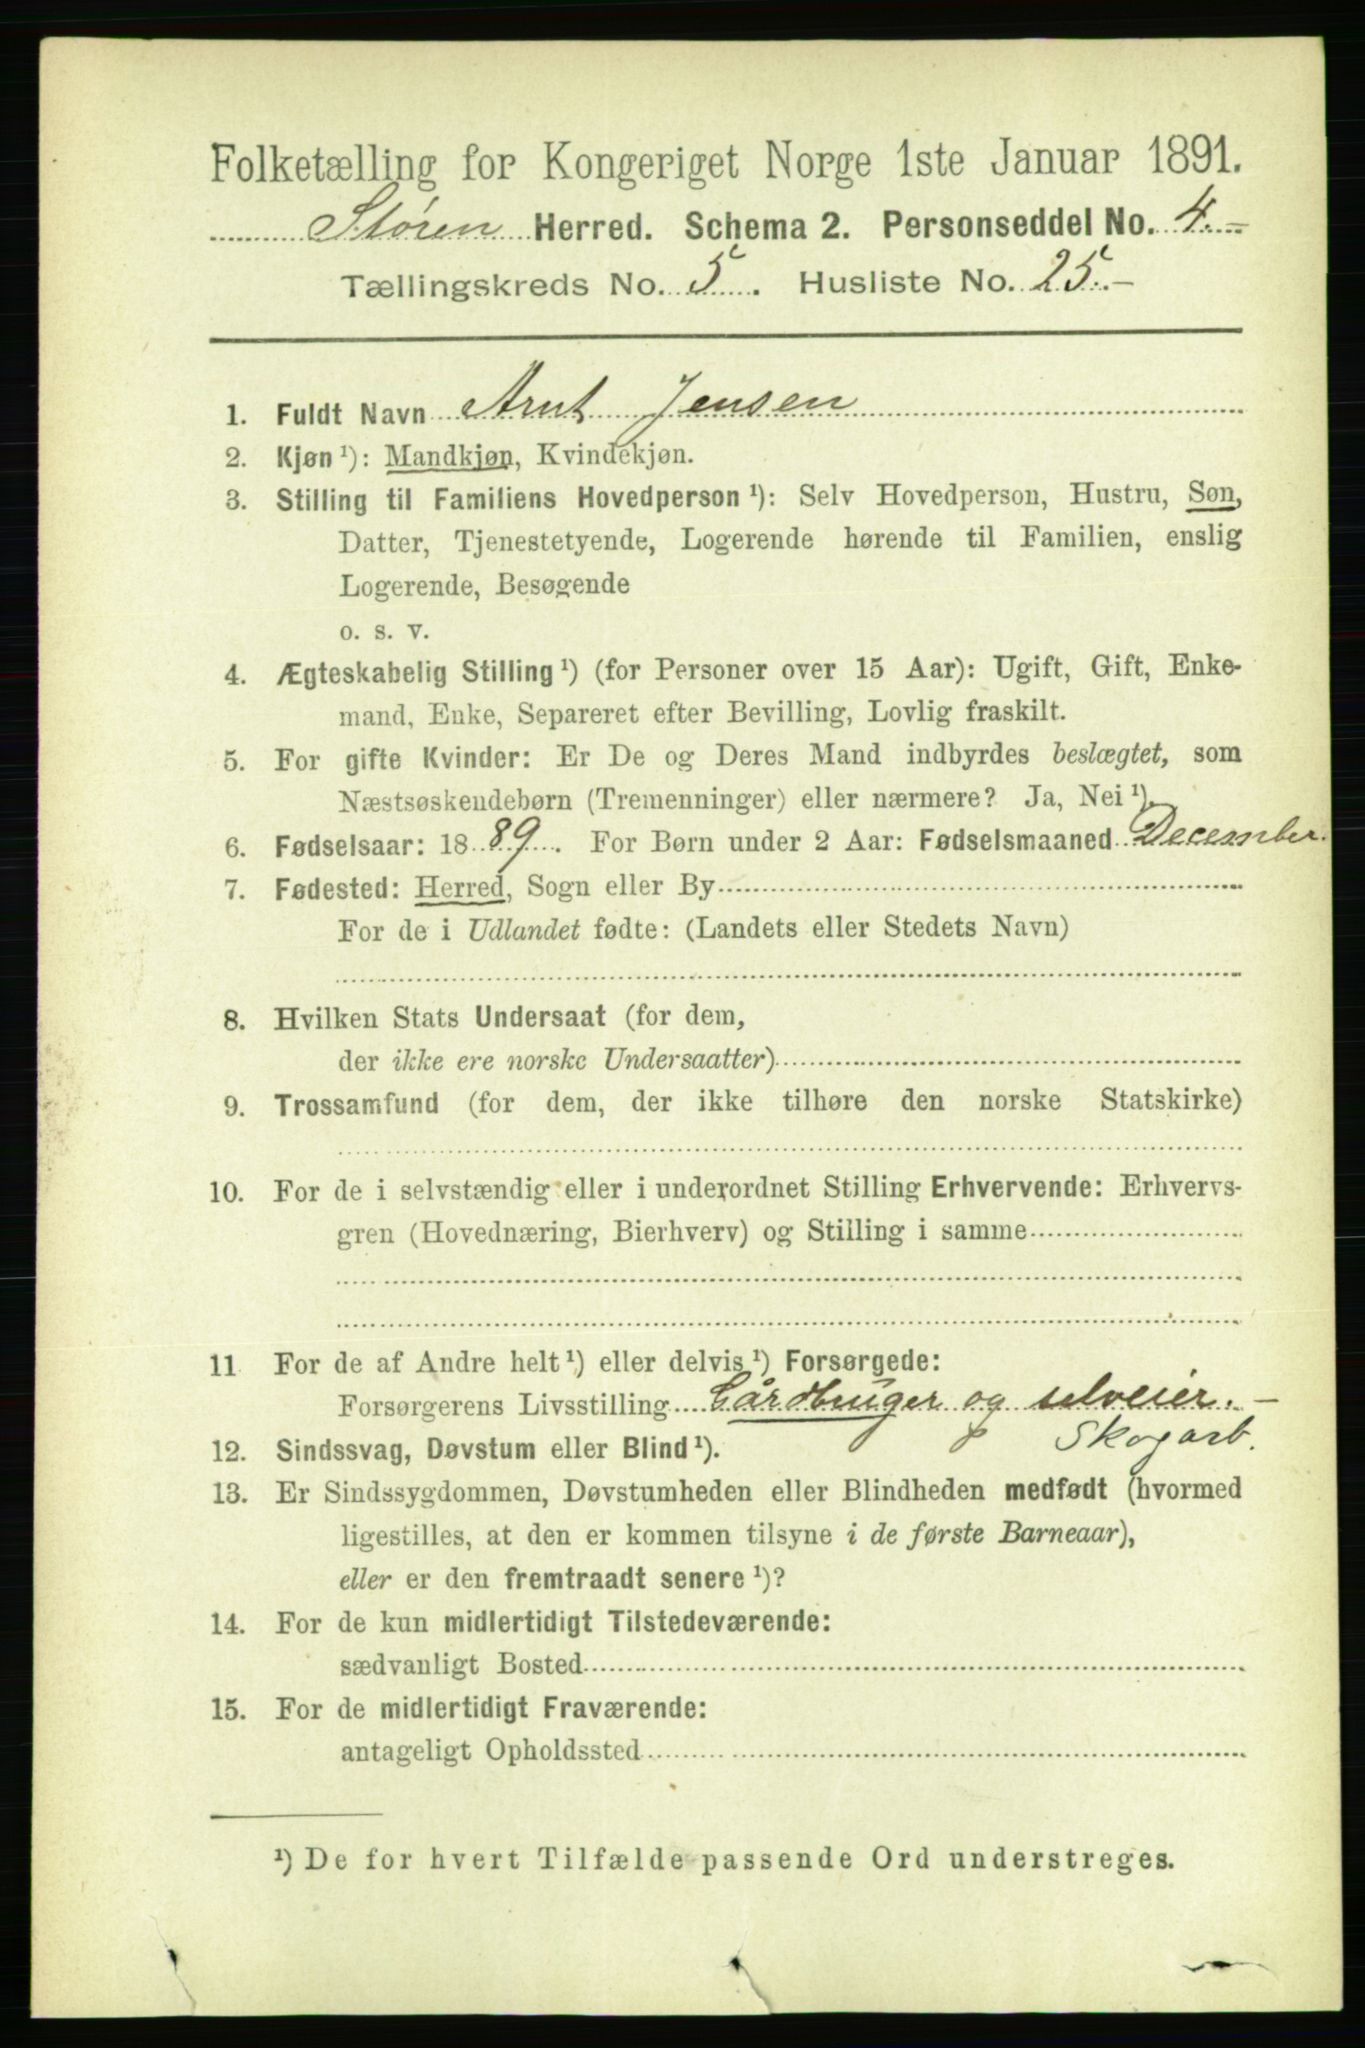 Folketælling for Kongeriget Norge 1ste Januar 1891.
Støren Herred. Schema 2. Personseddel No. 4.-
Tællingskreds No. 5. Husliste No. 25.-
1. Fuldt Navn Arnt Jensen
2. Kjøn ¹): Mandkjøn, Kvindekjøn.
3. Stilling til Familiens Hovedperson ¹): Selv Hovedperson, Hustru, Søn,
Datter, Tjenestetyende, Logerende hørende til Familien, enslig
Logerende, Besøgende
o. s. v.
4. Ægteskabelig Stilling ¹) (for Personer over 15 Aar): Ugift, Gift, Enke-
mand, Enke, Separeret efter Bevilling, Lovlig fraskilt.
5. For gifte Kvinder: Er De og Deres Mand indbyrdes beslægtet, som
Næstsøskendebørn (Tremenninger) eller nærmere? Ja, Nei ¹).
6. Fødselsaar: 1889. For Børn under 2 Aar: Fødselsmaaned December.
7. Fødested: Herred, Sogn eller By
For de i Udlandet fødte: (Landets eller Stedets Navn)
8. Hvilken Stats Undersaat (for dem,
der ikke ere norske Undersaatter)
9. Trossamfund (for dem, der ikke tilhøre den norske Statskirke)
10. For de i selvstændig eller i underordnet Stilling Erhvervende: Erhvervs-
gren (Hovednæring, Bierhverv) og Stilling i samme
11 For de af Andre helt ¹) eller delvis ¹) Forsørgede:
Forsørgerens Livsstilling Gårdbruger og selveier.-
Skogarb.
12. Sindssvag, Døvstum eller Blind ¹).
13. Er Sindssygdommen, Døvstumheden eller Blindheden medfødt (hvormed
ligestilles, at den er kommen tilsyne i de første Barneaar),
eller er den fremtraadt senere ¹)?
14. For de kun midlertidigt Tilstedeværende:
sædvanligt Bosted
15. For de midlertidigt Fraværende:
antageligt Opholdssted
¹) De for hvert Tilfælde passende Ord understreges.